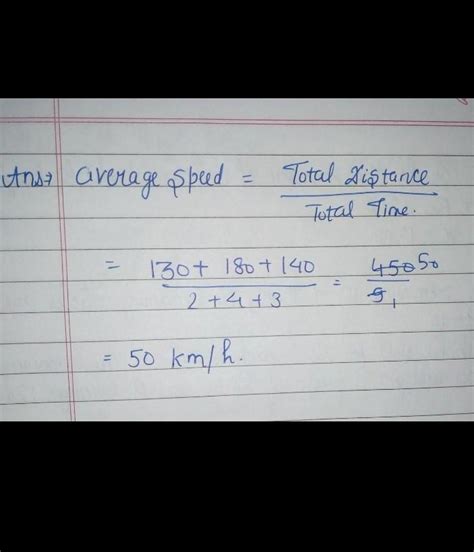 Ans→ average Speed = Total Distance / Total Time.
= 130 + 180 + 140 / 2 + 4 + 3 = 450 50 / 9 1
= 50 km/h.